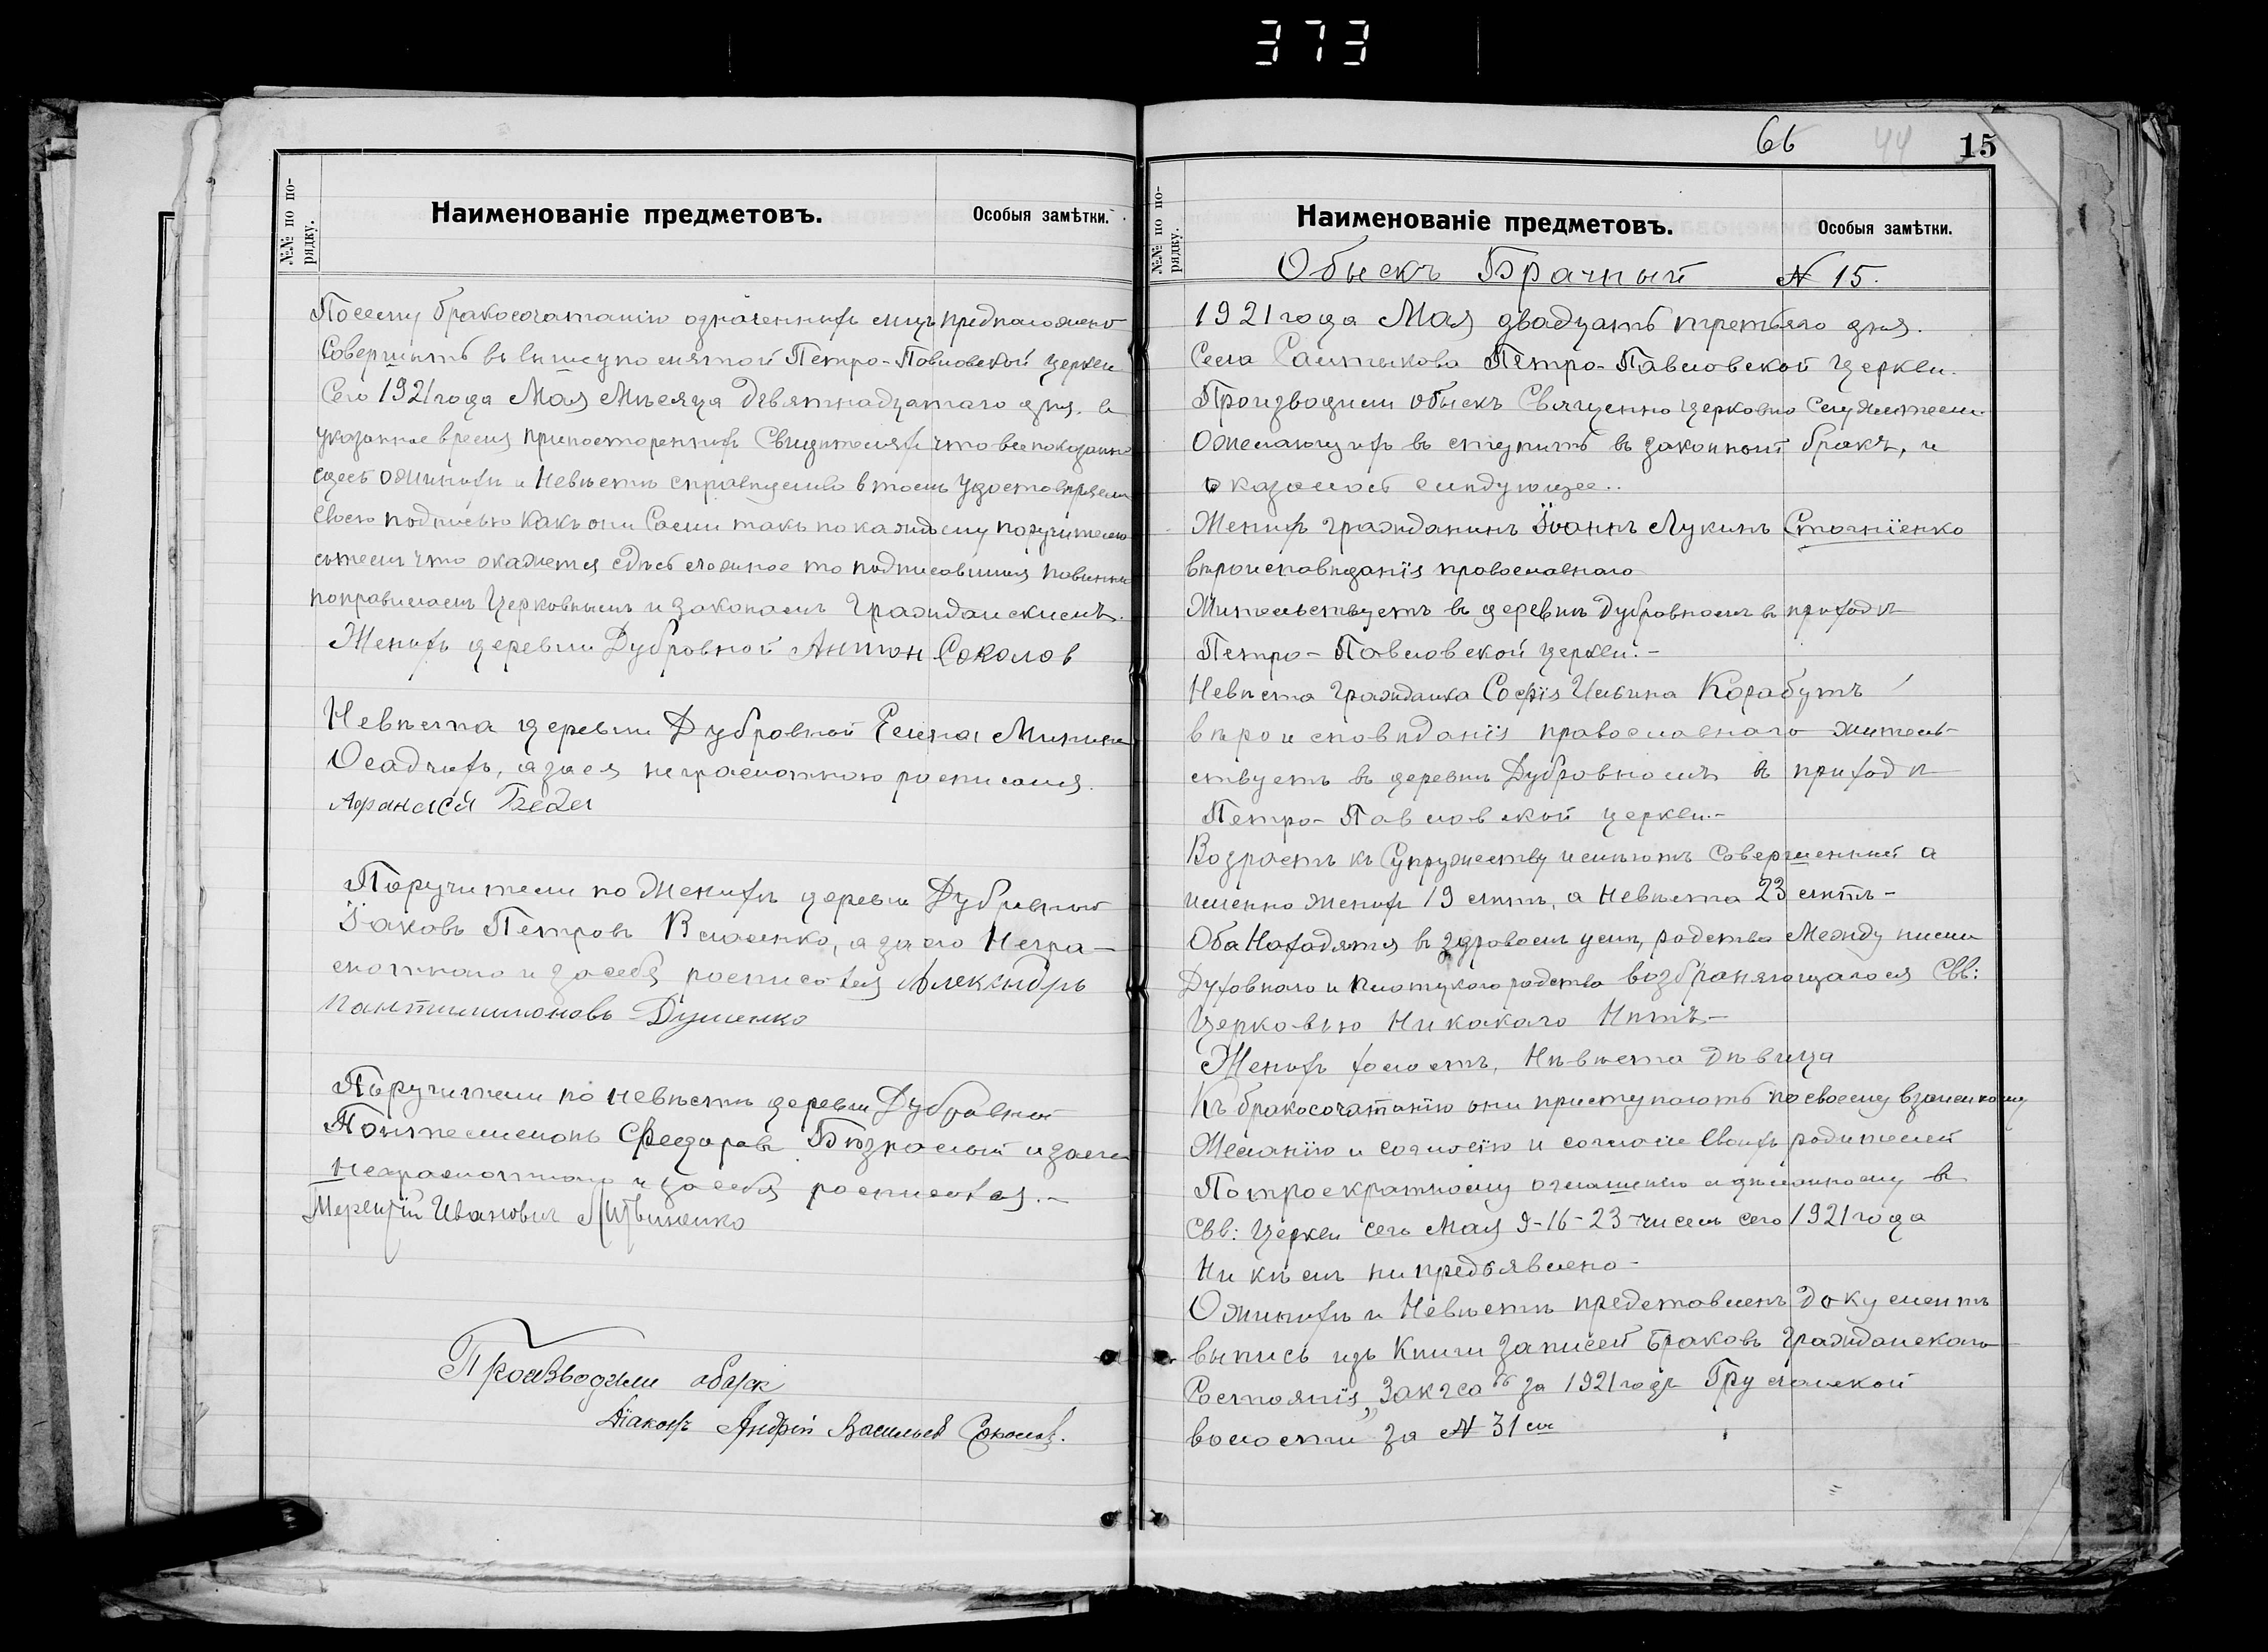 373
№№ по по-
рядку.
Наименованіе предметовъ.
Особыя замѣтки.
Посему бракосочатанію означеннихъ лицъ предположено
Совершить въ вишеупомянтой Петро-Павловской церкви
Сего 1921 года Мая Мѣсяца девятнадцатаго дня. в
указанное время припостороннихъ Свидителяхъ что все показанно
здесь ожинихи и Невѣсти справидливо втомъ удостовѣряем
Своею подписью какъ они Сами такъ по каждому поручителю
стемъ что окажется здесь ложное то подписавшися повинни
поправиламъ Церковнымъ и законамъ Гражданскимъ.
Женихъ деревни Дубровной Антон Соколов
Невѣста деревни Дубровной Елена Минина
Осадчихъ, азаея неграмотною росписался.
Афанасій Беда
Поручители по Женихѣ деревни Дубровной
Іаковъ Петровъ Власенко, азаего Негра-
мотнаго и засебя росписался Александръ
Пантилимоновъ Душенко
Поручители по невѣстѣ деревни Дубровной
Понтелимонъ Федоровъ изаего
Неграмотного и засебя росписался.-
Иванович Литвиненко
Производили обыск
Діаконъ Андрій Васильев Соколов.
66 44 15
№№ по по-
рядку.
Наименованіе предметовъ.
Особыя замѣтки.
Обыскъ Брачный № 15.
1921 года Мая двадцать третьяго дня.
Села Салтыкова Петро-Павловской церкви.
Производили обыскъ Священно церковно служители.
Ожелающихъ въ ступить въ законный бракъ, и
оказалось слидующее..
Женихъ гражданинъ Іоаннъ Лукинъ Стогніенко
вѣроисповиданія провославнаго
Жительствуетъ въ деревнѣ Дубровномъ в приходѣ
Петро-Павловской церкви.-
Невѣста гражданка Софія Ильвина Корабутъ
вѣроисповиданія православнаго житель-
ствуетъ въ деревнѣ Дубровномъ в приходѣ
Петро-Павловской церкви.-
Возрастъ къ Супружеству имѣютъ Совершенний а
именно жених 19 лѣтъ, а Невѣста 23 лѣтъ-
Оба Находятся в здровомъ умѣ, родства Между ними
Духовного и Плотского родства возбраняющагося Свв:
Церковью Никакаго Нѣтъ-
Женихъ холостъ, Нѣвѣста дѣвица
Къ бракосочатанію они приступаютъ посвоему взаимному
Желанію и согласію и согласіи Своихъ родителей
Потроекратному оглашенію адиланному в
Свв: Церкви сего Мая 9-16-23 числъ сего 1921 года
Ни кѣмъ ни предъявлено-
Ожинихи и Невѣсти представленъ документъ
выпись изъ Книги Записей Браковъ Гражданскаго
Состоянія „Закгса" за 1921 годъ
волости за № 31 м